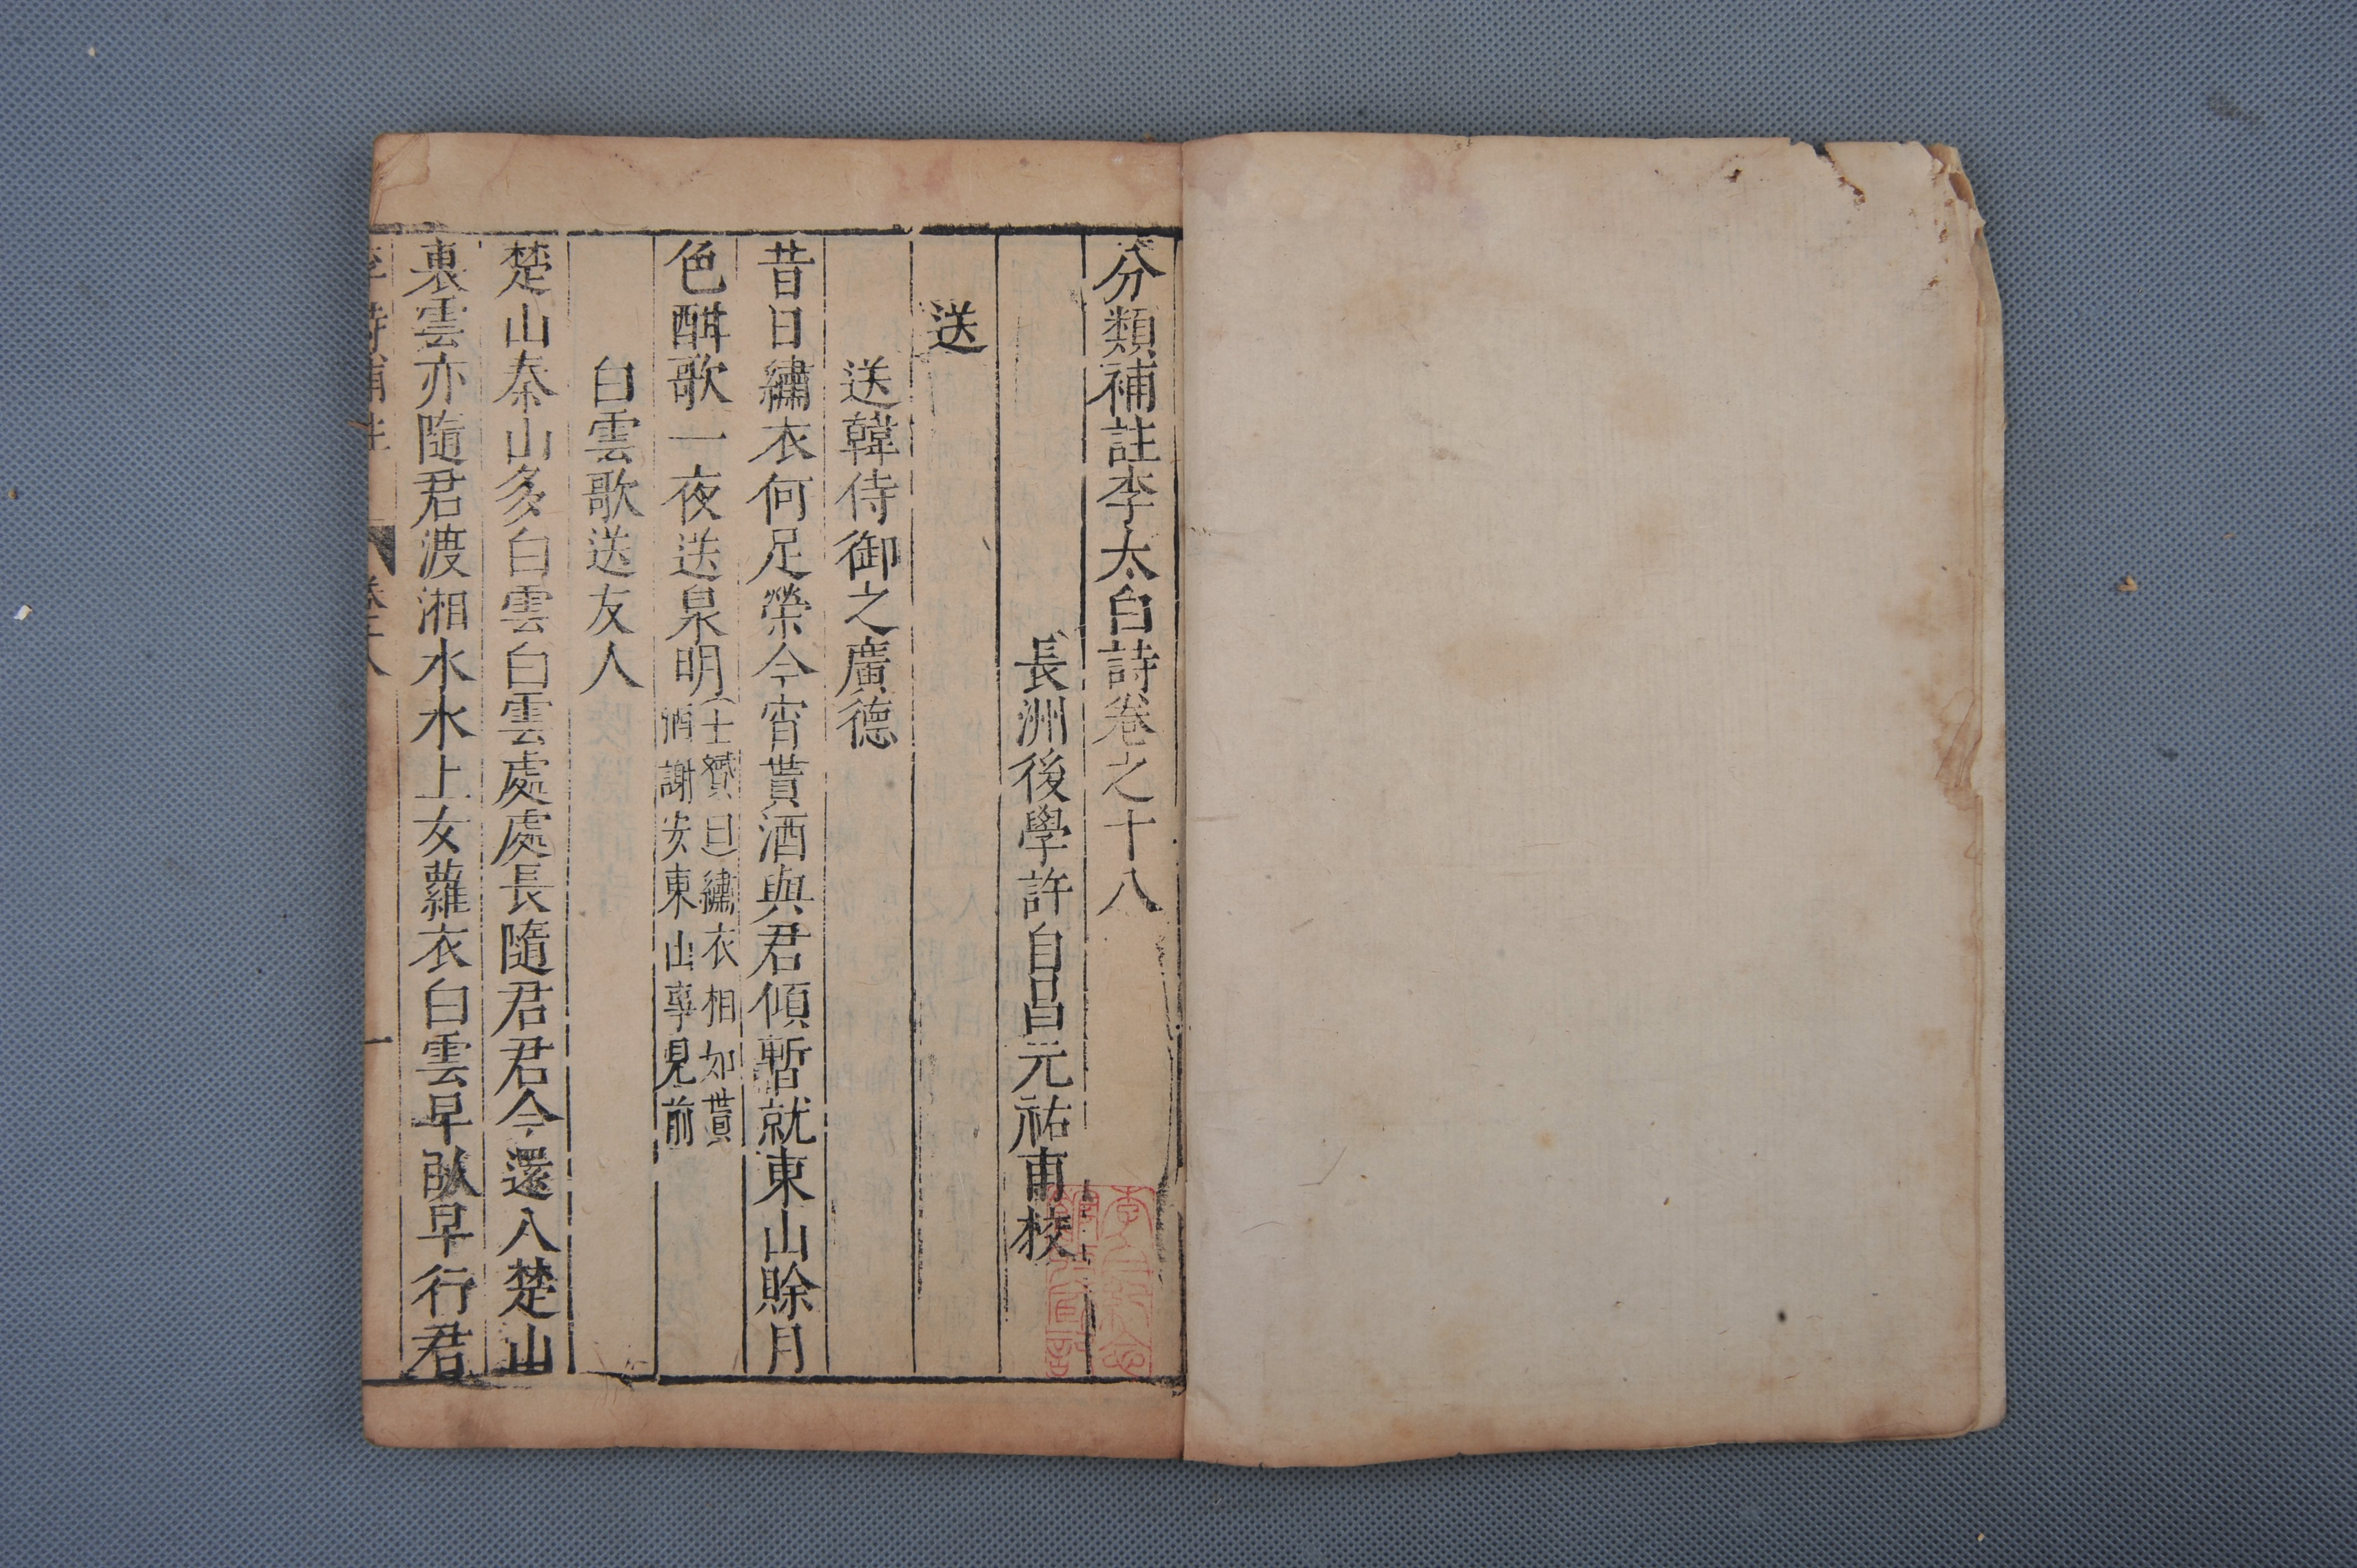 分類補註李太白詩卷之十八
長洲後學許自昌元祐甫校
送
送韓侍御之廣德
昔日繡衣何足榮今宵貰酒與君傾暫就東山賖月
色酣歌一夜送泉明
士贇曰繡衣相如貰
酒謝安東山事見前
白雲歌送友人
楚山秦山多白雲白雲處處長隨君君今還入楚山
裏雲亦隨君渡湘水水上女蘿衣白雲早臥早行君